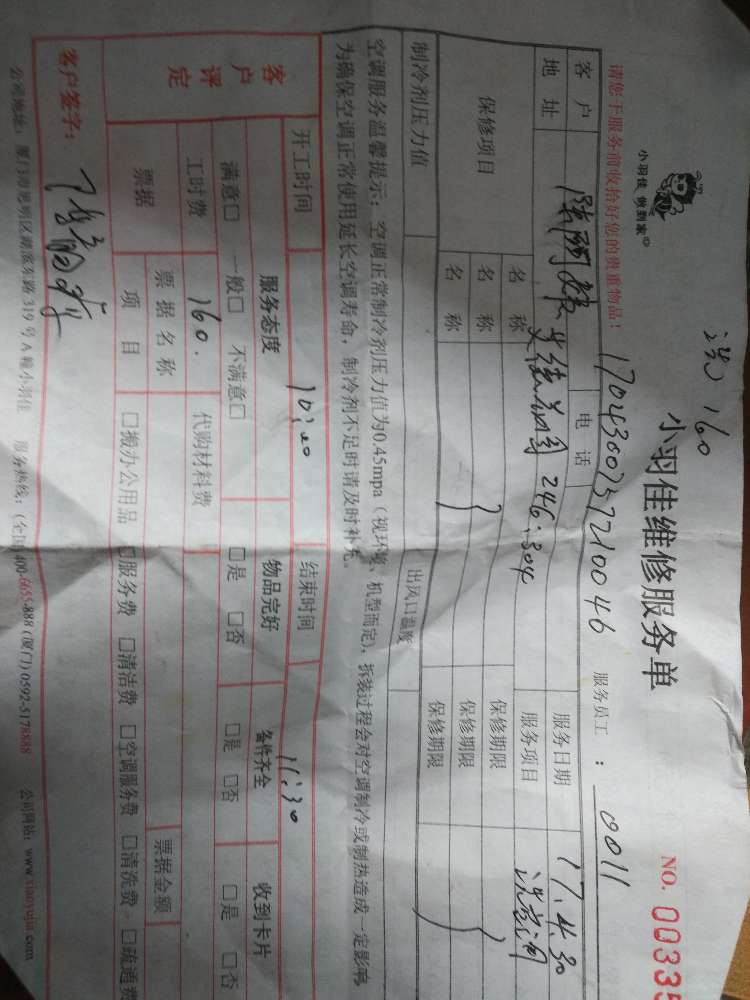 小羽佳 做到家
洗 160
小羽佳维修服务单
NO. 00335
请您于服务前收拾好您的贵重物品!
1704300357210046
服务员工 : 0011
客户 电话 服务日期 17.4.30
地址 246:304 服务项目
保修项目 名称 保修期限
名称 保修期限
名称 保修期限
制冷剂压力值 出风口温度
空调服务温馨提示:空调正常制冷剂压力值为0.45mpa(视环境、机型而定),拆装过程会对空调制冷或制热造成一定影响
为确保空调正常使用延长空调寿命,制冷剂不足时请及时补充。
开工时间 10:20 结束时间 11:30
客户评定 服务态度 物品完好 备件齐全 收到卡片
满意□ 一般□ 不满意□ □是 □否 □是 □否 □是 □否
工时费 160. 代购材料费
票据 票据名称 票据金额
项目 □搬办公用品 □服务费 □清洁费 □空调服务费 □清洗费 □疏通费
客户签字:
公司地址:厦门市思明区湖滨东路319号A幢小羽佳 服务热线:(全国)400-6655-888 (厦门)0592-5178888 公司网站:www.xiaoyujia.com